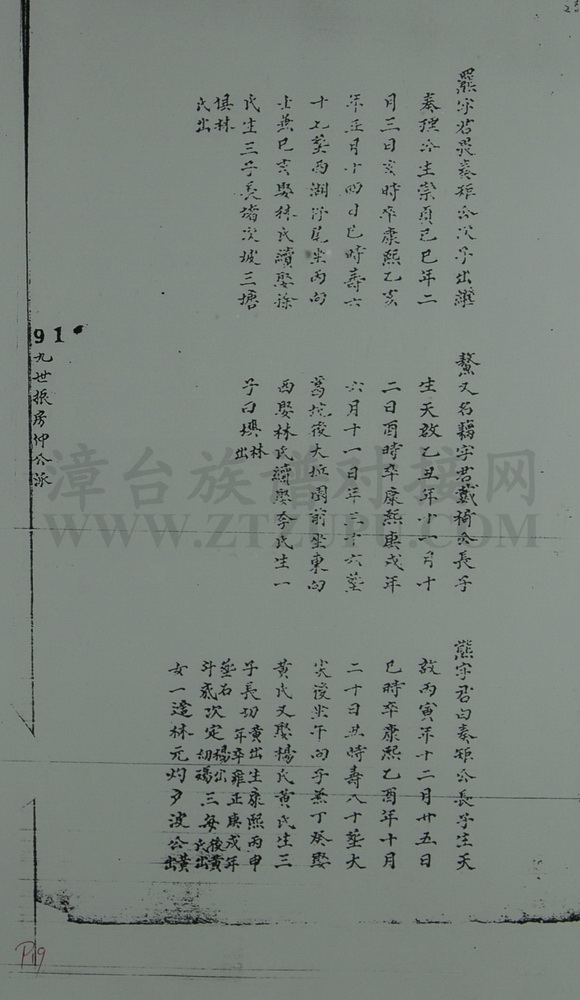 羆字君畏泰雉公次子出繼
泰理公生崇貞己巳年二
月三日亥時卒康熙乙亥
年正月十四日巳時壽六
十七葬西湖浮尾坐丙向
壬兼巳亥娶林氏續娶徐
氏生三子長堵次坡三塘
俱林
氏出
鰲又名藕字君戴椅公長子
生天啟乙丑年十一月十
二日酉時卒康熙庚戌年
六月十一日年三十六葬
葛坑後大坵園前坐東向
西娶林氏續娶李氏生一
子曰墺林
出
熊字君白泰雉公長子生天
啟丙寅年十二月廿五日
巳時卒康熙乙酉年十月
二十日丑時壽八十葬大
尖後坐午向子兼丁癸娶
黃氏又娶楊氏黃氏生三
子長切黃出生康熙丙申
年卒雍正庚戌年
葬石
斗底次定楊出
三每後黃
氏出
女一適林元灼
公黃
出
91
九世振房仲公派
漳台族谱对接网
WWW.ZTZUPU.COM
P19